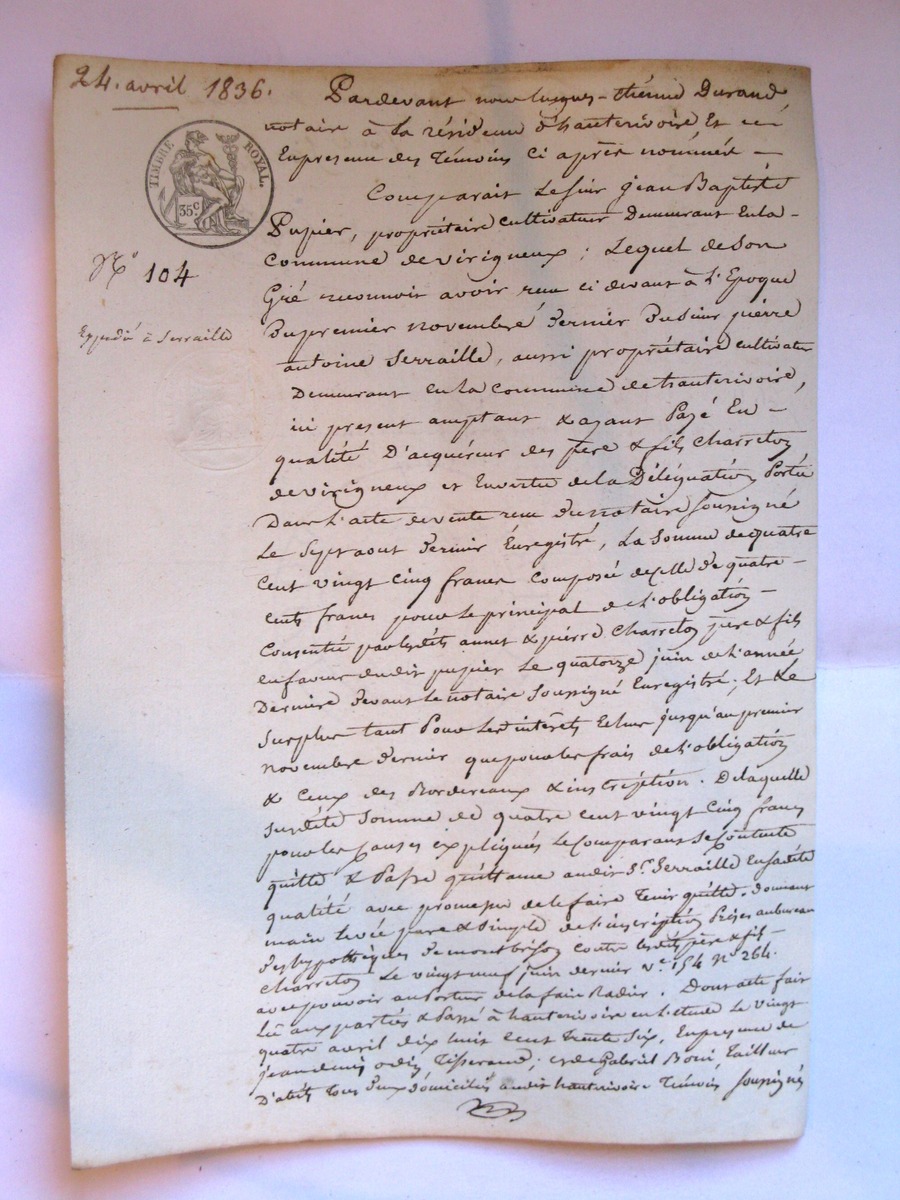 24. avril 1836.
TIMBRE ROYAL.
35c
No 104
Expédié à Serraille
Pardevant nous Durand
notaire à la résidence d'hauterivoire Et
En presence des témoins Ci après nommés –
Comparait Le sieur jean Baptiste
Pupier, propriétaire cultivateur Demeurant En la –
Commune de virigneux ; Lequel de Son
Gré reconnoit avoir reçu ci devant à l'Epoque
Du premier novembre Dernier Du sieur pierre
antoine Serraille, aussi propriétaire cultivateur
Demeurant en la Commune de hauterivoire,
ici present acceptant & ayant Payé En –
qualité D'acquéreur des père & fils Charretoy
de virigneux et En vertu de la Délégation Portée
Dans L'acte de vente reçu du notaire soussigné
Le Sept aout Dernier Enregistré, La Somme de quatre
Cent vingt Cinq francs Composée de celle de quatre –
cents francs pour le principal de L'obligation –
Consentie par lesdits annet & pierre Charretoy père & fils
en faveur dudit pupier Le quatorze juin de L'année
Dernière Devant Le notaire Soussigné Enregistré ; Et Le
Surplus tant Pour Les intérêts Echus jusqu'au premier
novembre Dernier que pour les frais de L'obligation
& Ceux des Bordereaux & inscription. De laquelle
susdite Somme de quatre cent vingt Cinq francs
pour les Causes expliquées Le Comparant Se Contente
quitte & Passe quittance audit Sr. Serraille En sadite
qualité avec promesse de le faire Tenir quitte. Donnant
main Levée pure & Simple de L'inscription Prise au bureau
Des hypothèques De montbrison contre lesdits père & fils –
Charretoy Le vingt neuf juin dernier Ve. 154 No 264.
avec pouvoir au Porteur de la faire Radier. Dont acte fait
Lû aux parties & Passé à hauterivoire en L'étude Le vingt
quatre avril dix huit Cent Trente Six, En presence de
jean denis odin, Tisserand ; et de Gabriel Tailleur
D'abits Tous Deux Domiciliés audit hauterivoire Témoins Soussignés